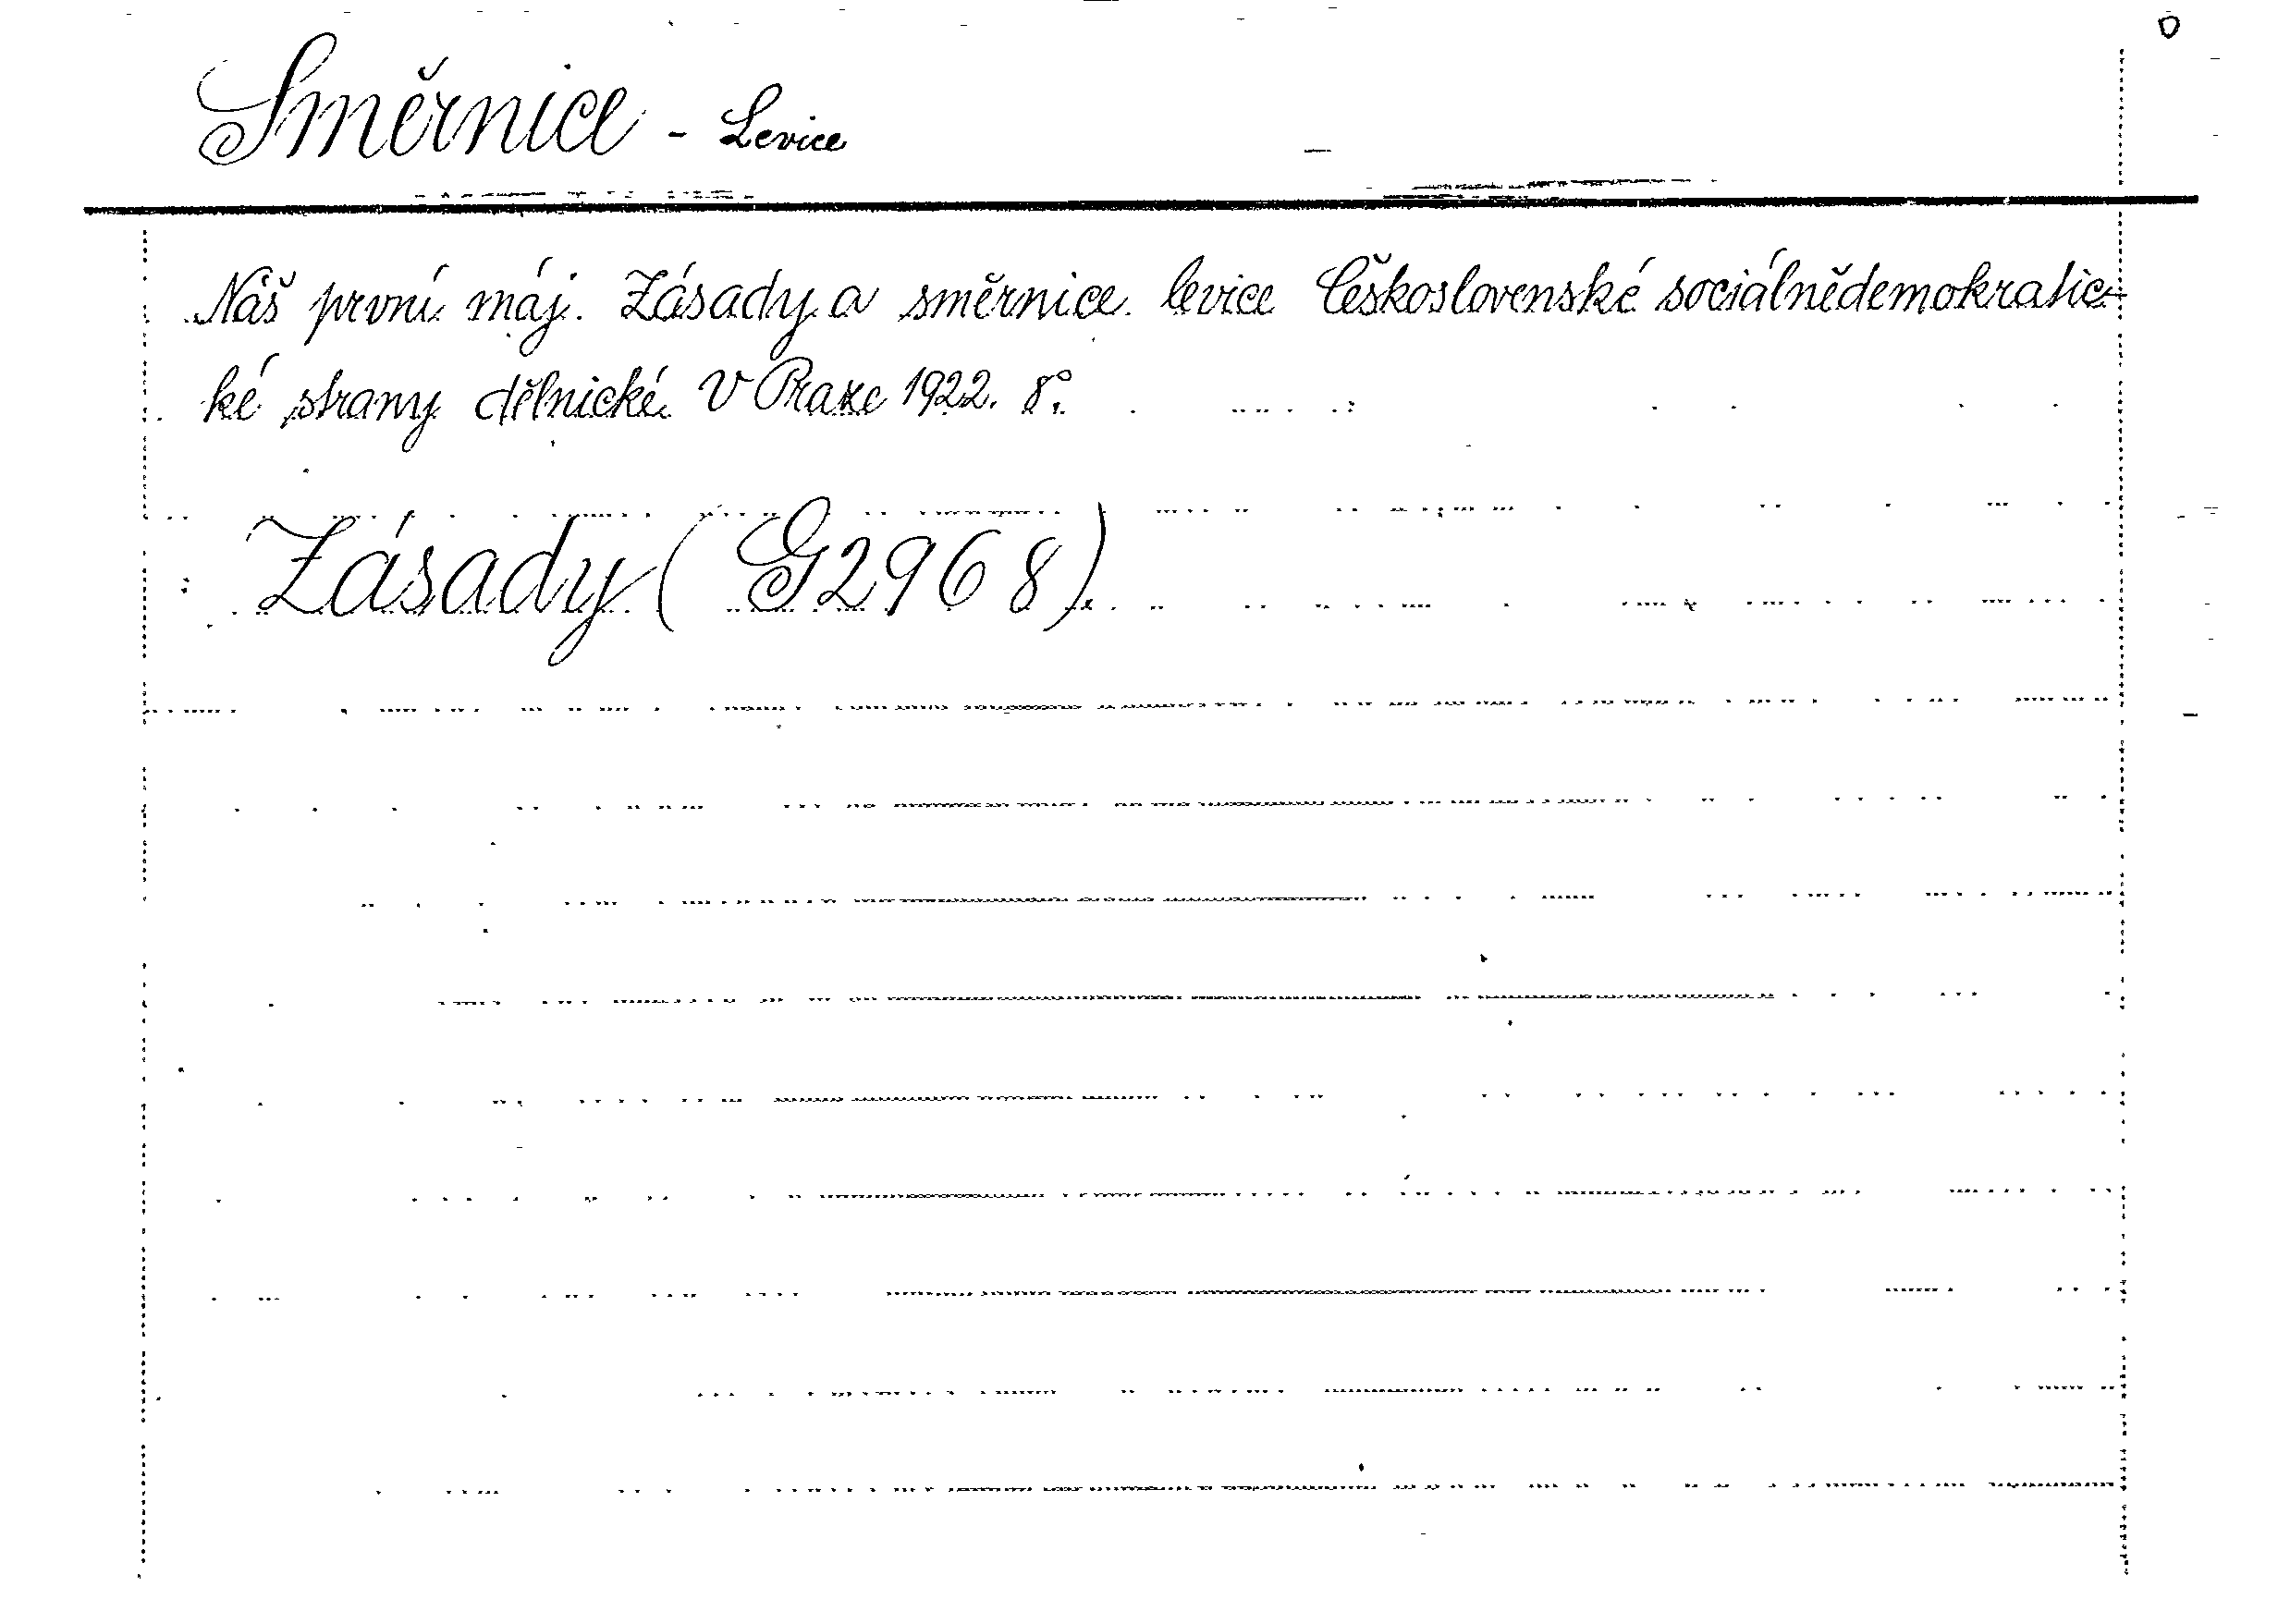 Směrnice - Levice
Náš první máj. Zásady a směrnice levice Československé sociálnědemokratic-
ké strany dělnické. V Praze 1922. 8°.
Zásady (G2968).